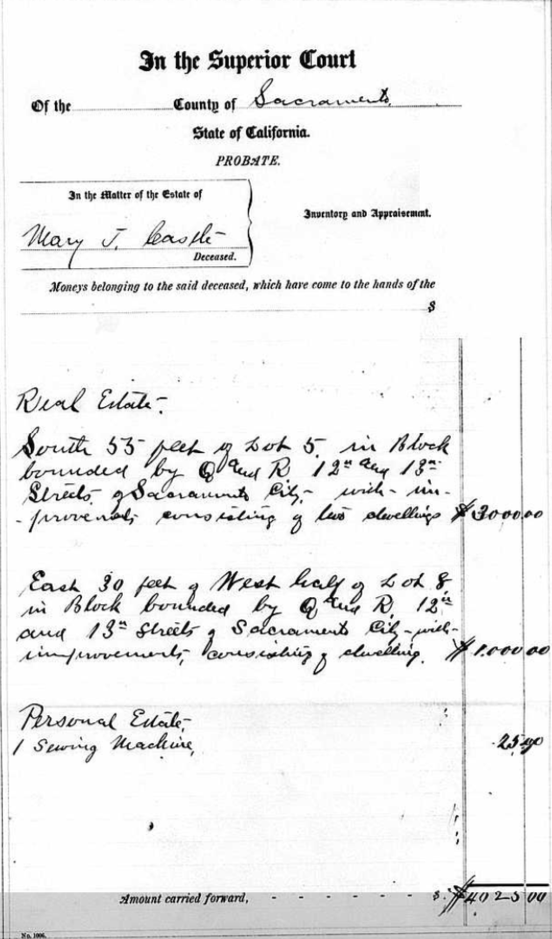 In the Superior Court
Of the County of Sacramento,
State of California.
PROBATE.
In the Matter of the Estate of
Mary J. Castle
Deceased.
Inventory and Appraisement.
Moneys belonging to the said deceased, which have come to the hands of the
$
Real Estate.
South 55 feet of Lot 5, in Block
bounded by Q and R 12th and 13th
Streets of Sacramento City, with im-
-provements consisting of two dwellings $3000.00
East 30 feet of West half of Lot 8
in Block bounded by Q and R, 12th
and 13th Streets of Sacramento City with
improvements, consisting of dwelling. $1.000 00
Personal Estate,
1 Sewing Machine, 25 00
Amount carried forward, - - - - - $ $4025 00
No. 1006.